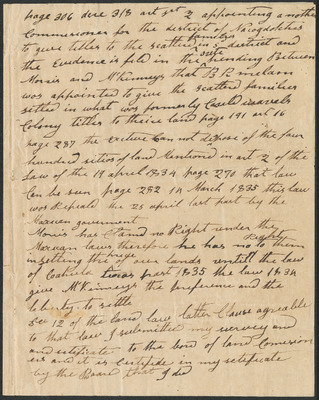 page 306 decre 313 art get 2 appointing a nother
Commissoner for the district of Nacogdoches
families
to give titles to the scattered in district and
suite
the Evidence is fild in the pending Between
Morris and McKinneys that B R melam
was appointed to give the scattered families
setled in what was formerly
Colony titles to theire land page 191 art 16
page 287 the executive Cannot dispose of the four
hundred sitios of land Mentioned in art 2 of the
Law of the 19 april 1834 page 270 that law
Can be seen page 282 in March 1835 this law
was Repeald the 28 april last part by the
Mexican government
Morris has & had no Right under the
Mexican laws therefore he has no to them
in setling the of over lands untill the law
of Coahuila texas past 1835 the law 1834
give McKinneys the preference and the
to settle
Sec 12 of the land law latter Clause agreable
to that law I submitted my survey and
and setificate to the bord of land Comesion
ers and it is Certifide in my setificate
by the Board that I did